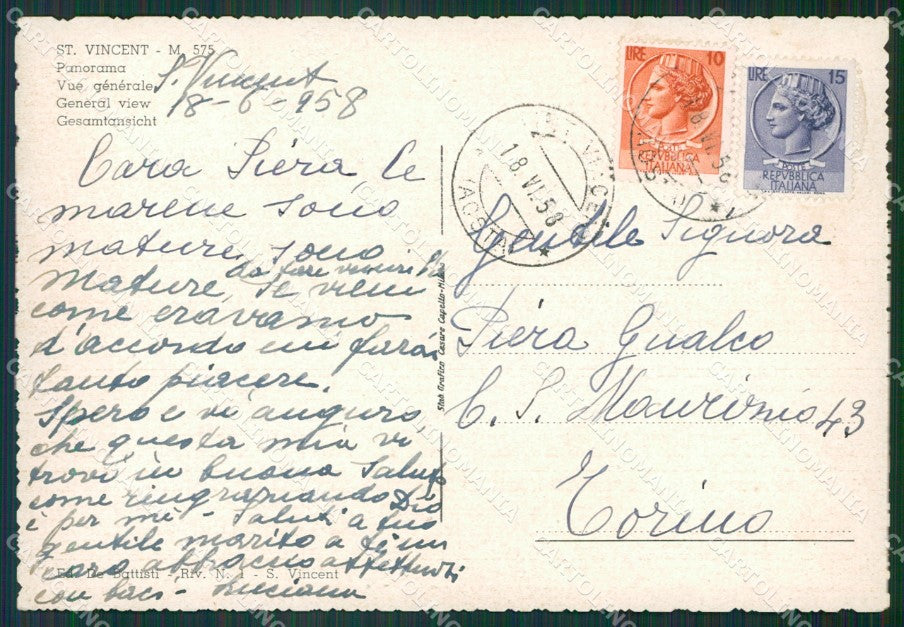 ST. VINCENT - M. 575
Panorama
Vue générale
General view
Gesamtansicht
S. Vincent
18-6-958
Cara Piera, le
marene sono
mature, sono
mature, da fare venire
se vieni
come eravamo
d'accordo mi farai
tanto piacere.
Spero e vi auguro,
che questa mia vi
trovi in buona salute
come ringraziando Dio
è per me - Saluti a tuo
gentile marito a te un
caro abbraccio affettuosi
con baci - Luciana
Ed. De Battisti - Riv. N. 1 - S. Vincent
Stab Grafico Cesare Capello-Milano
LIRE 10
REPVBBLICA
ITALIANA
LIRE 15
REPVBBLICA
ITALIANA
ST. VINCENT
18.VI.58
(AOSTA)
Gentile Signora
Piera Gualco
C. S. Maurizio 43
Torino
CARTOLINOMANIA